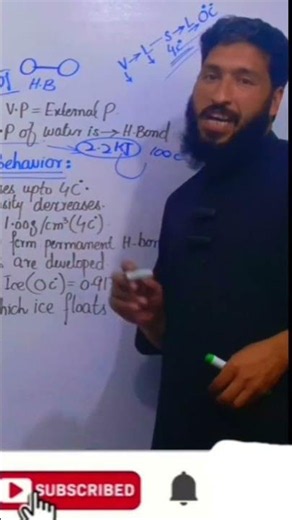 of
H·B
V → L → S → L, 0°C
4°C
V·P = External P.
·P of water is → H-Bond
2.2KJ 100C
Behavior:
ses upto 4C°.
sity decreases.
1.00g/cm³(4C)
form permanent H-bon
are developed
Ice(0C) = 0.917
which ice floats
SUBSCRIBED